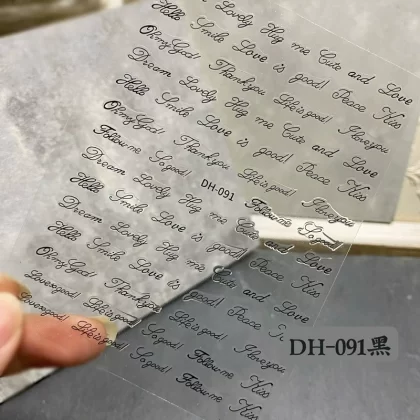 Lovely Hug me Cute and Love
Hello Smile Love is good! Peace Kiss
Oh my God! Thank you Life is good! I love you
Dream Lovely Hug me Cute and Love
Hello Smile Love is good! Peace Kiss
Oh my God! Thank you Life is good! I love you
Follow me So good! Follow me So good!
Dream Lovely Hug me Cute and Love
DH-091
Hello Smile Love is good! Peace Kiss
Dream Lovely Hug me Cute and Love
Hello Smile Love is good! Peace Kiss
Oh my God! Thank you Life is good! I love you
Love is good! Life is good! So good! Follow me Kiss
Love is good! Life is good! So good! Follow me Kiss
DH-091黑